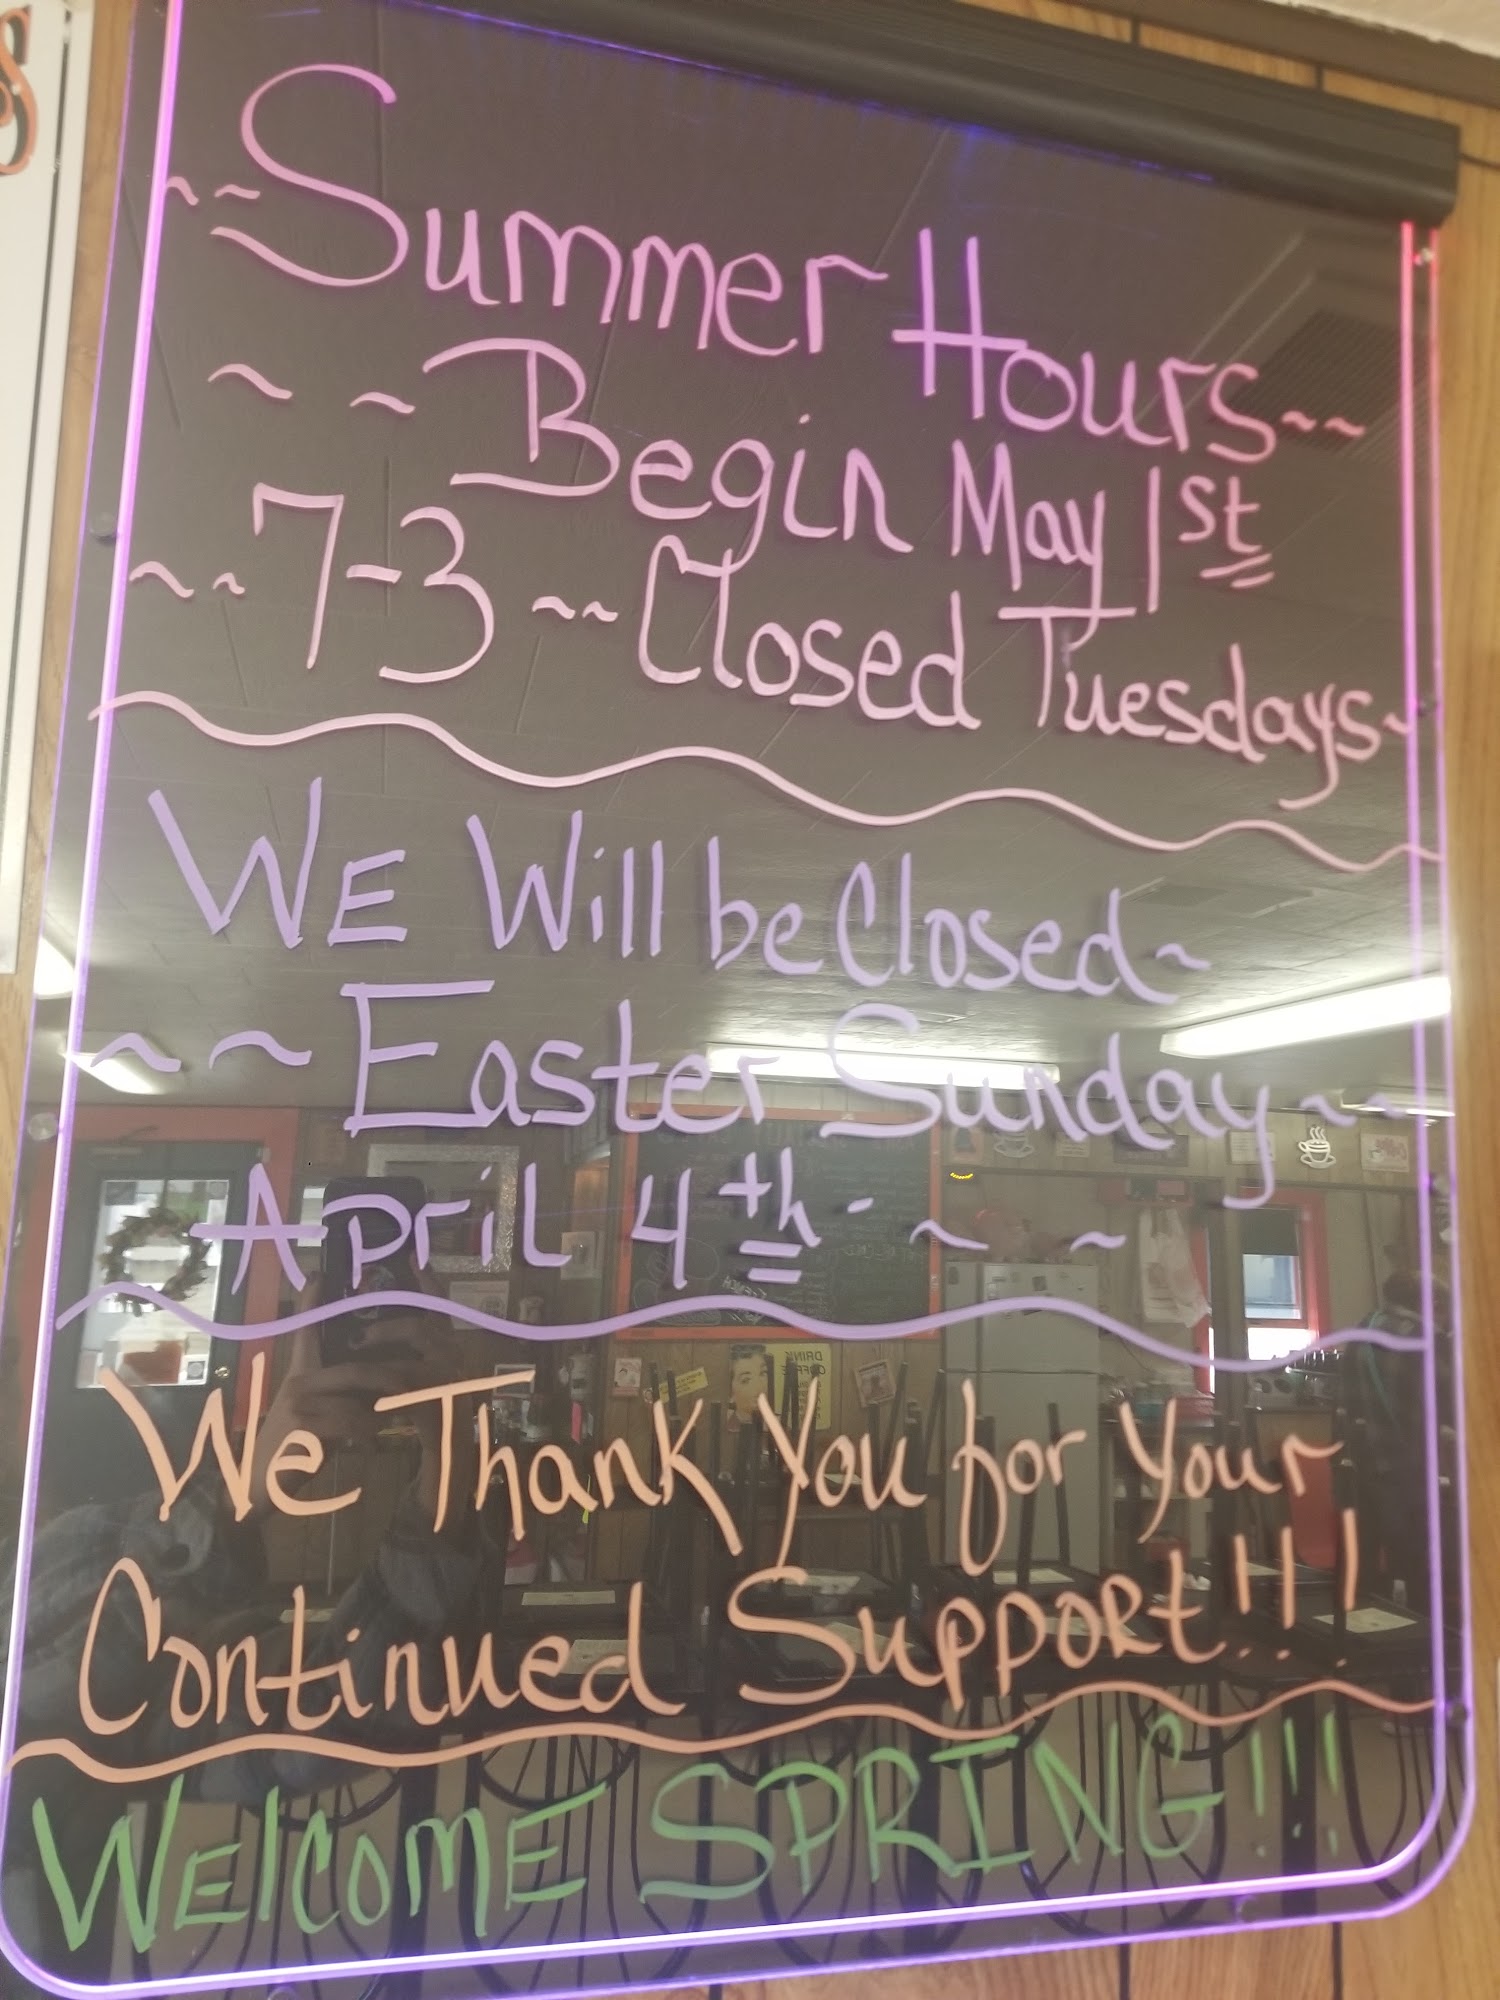 ~~Summer Hours~~
~ ~ Begin May 1st
~~ 7-3 ~~ Closed Tuesdays~
WE Will be Closed~
~ ~ Easter Sunday ~~
April 4th - ~ ~
We Thank You for Your
Continued Support!!!
WElcOmE SPRING!!!
DRINK
COFFEE
S